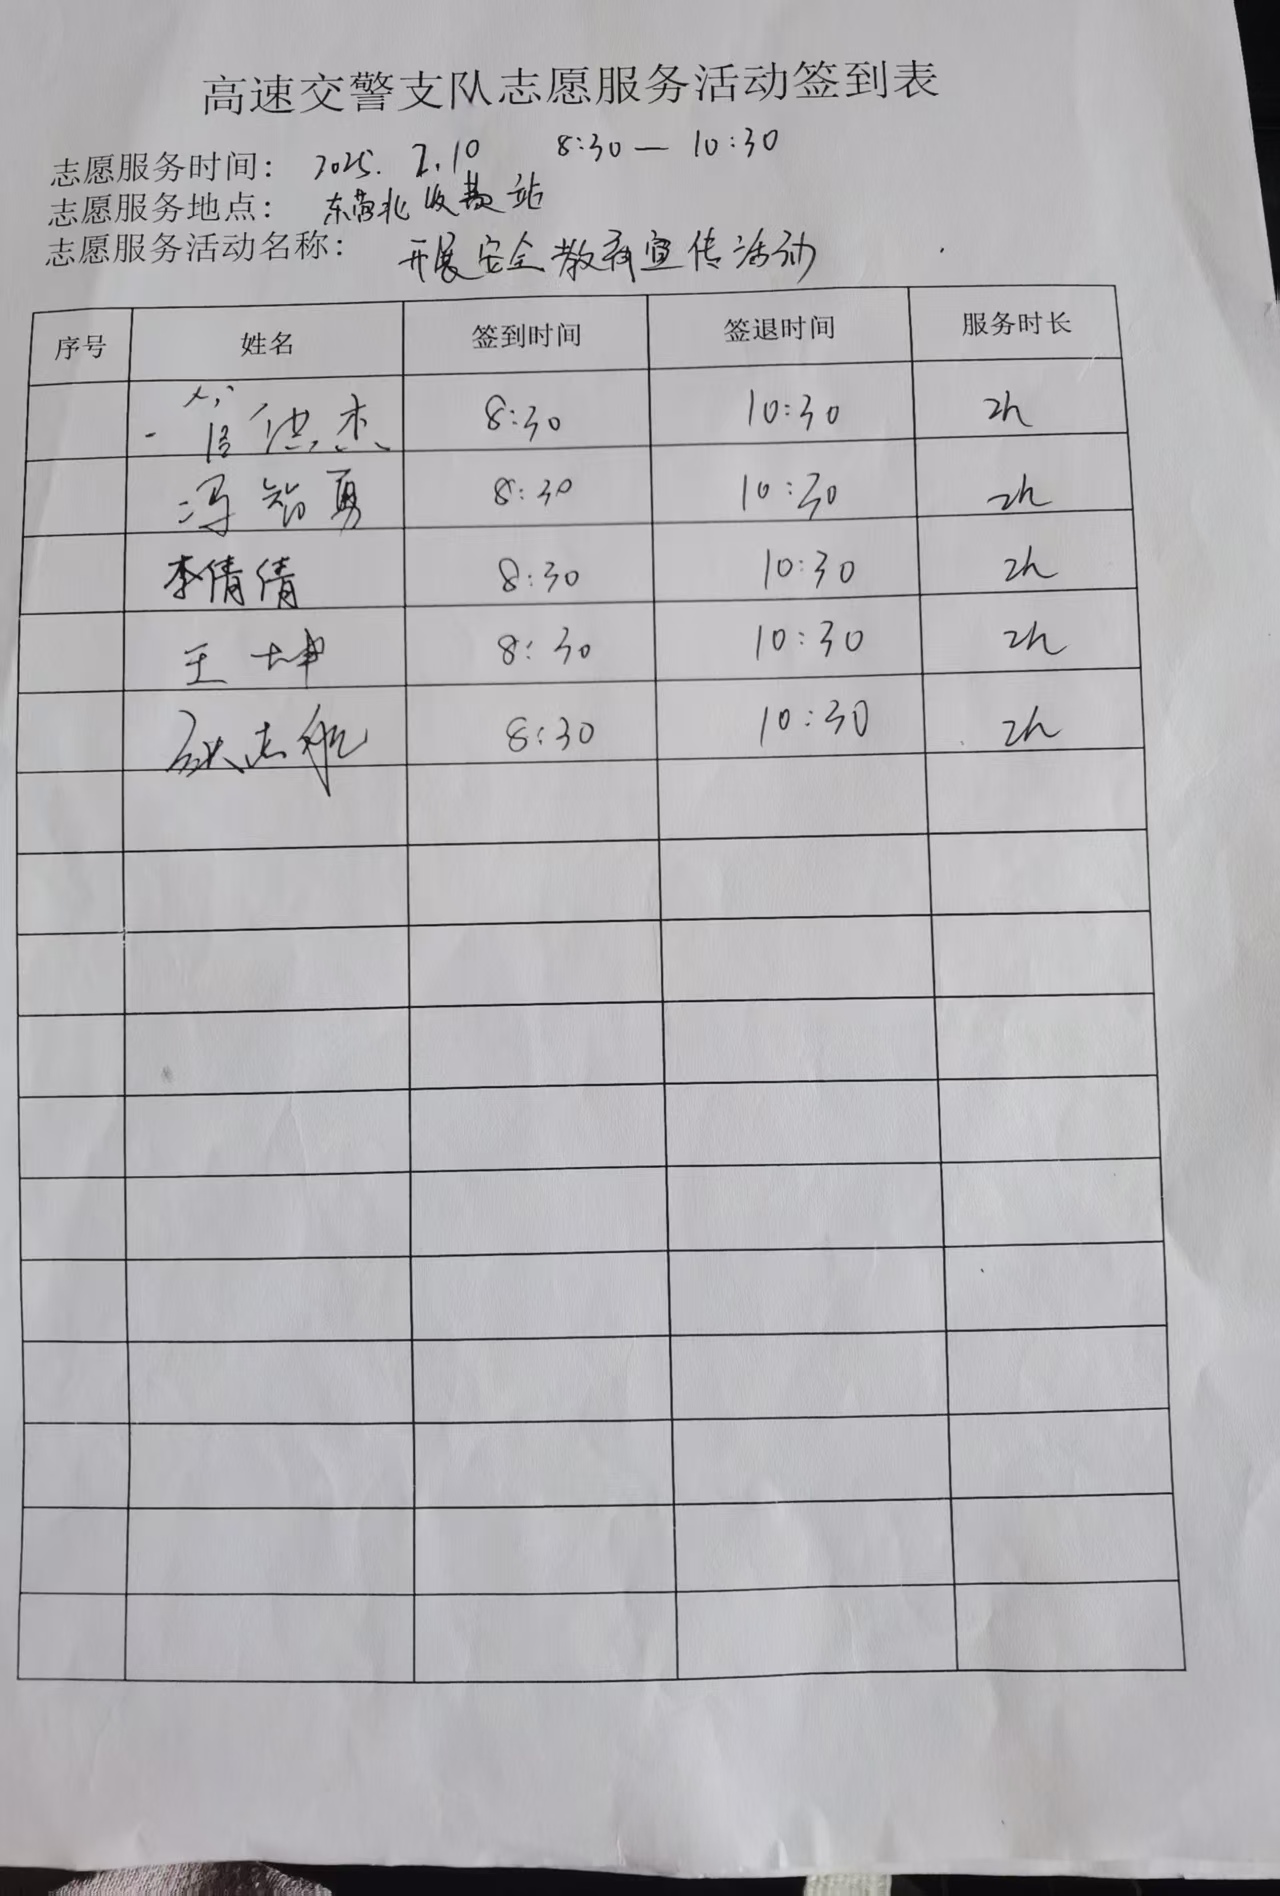 高速交警支队志愿服务活动签到表
志愿服务时间: 2025. 2.10 8:30 — 10:30
志愿服务地点: 东营北收费站
志愿服务活动名称: 开展安全教育宣传活动
序号 姓名 签到时间 签退时间 服务时长
8:30 10:30 2h
冯智勇 8:30 10:30 2h
李倩倩 8:30 10:30 2h
王坤 8:30 10:30 2h
志航 8:30 10:30 2h